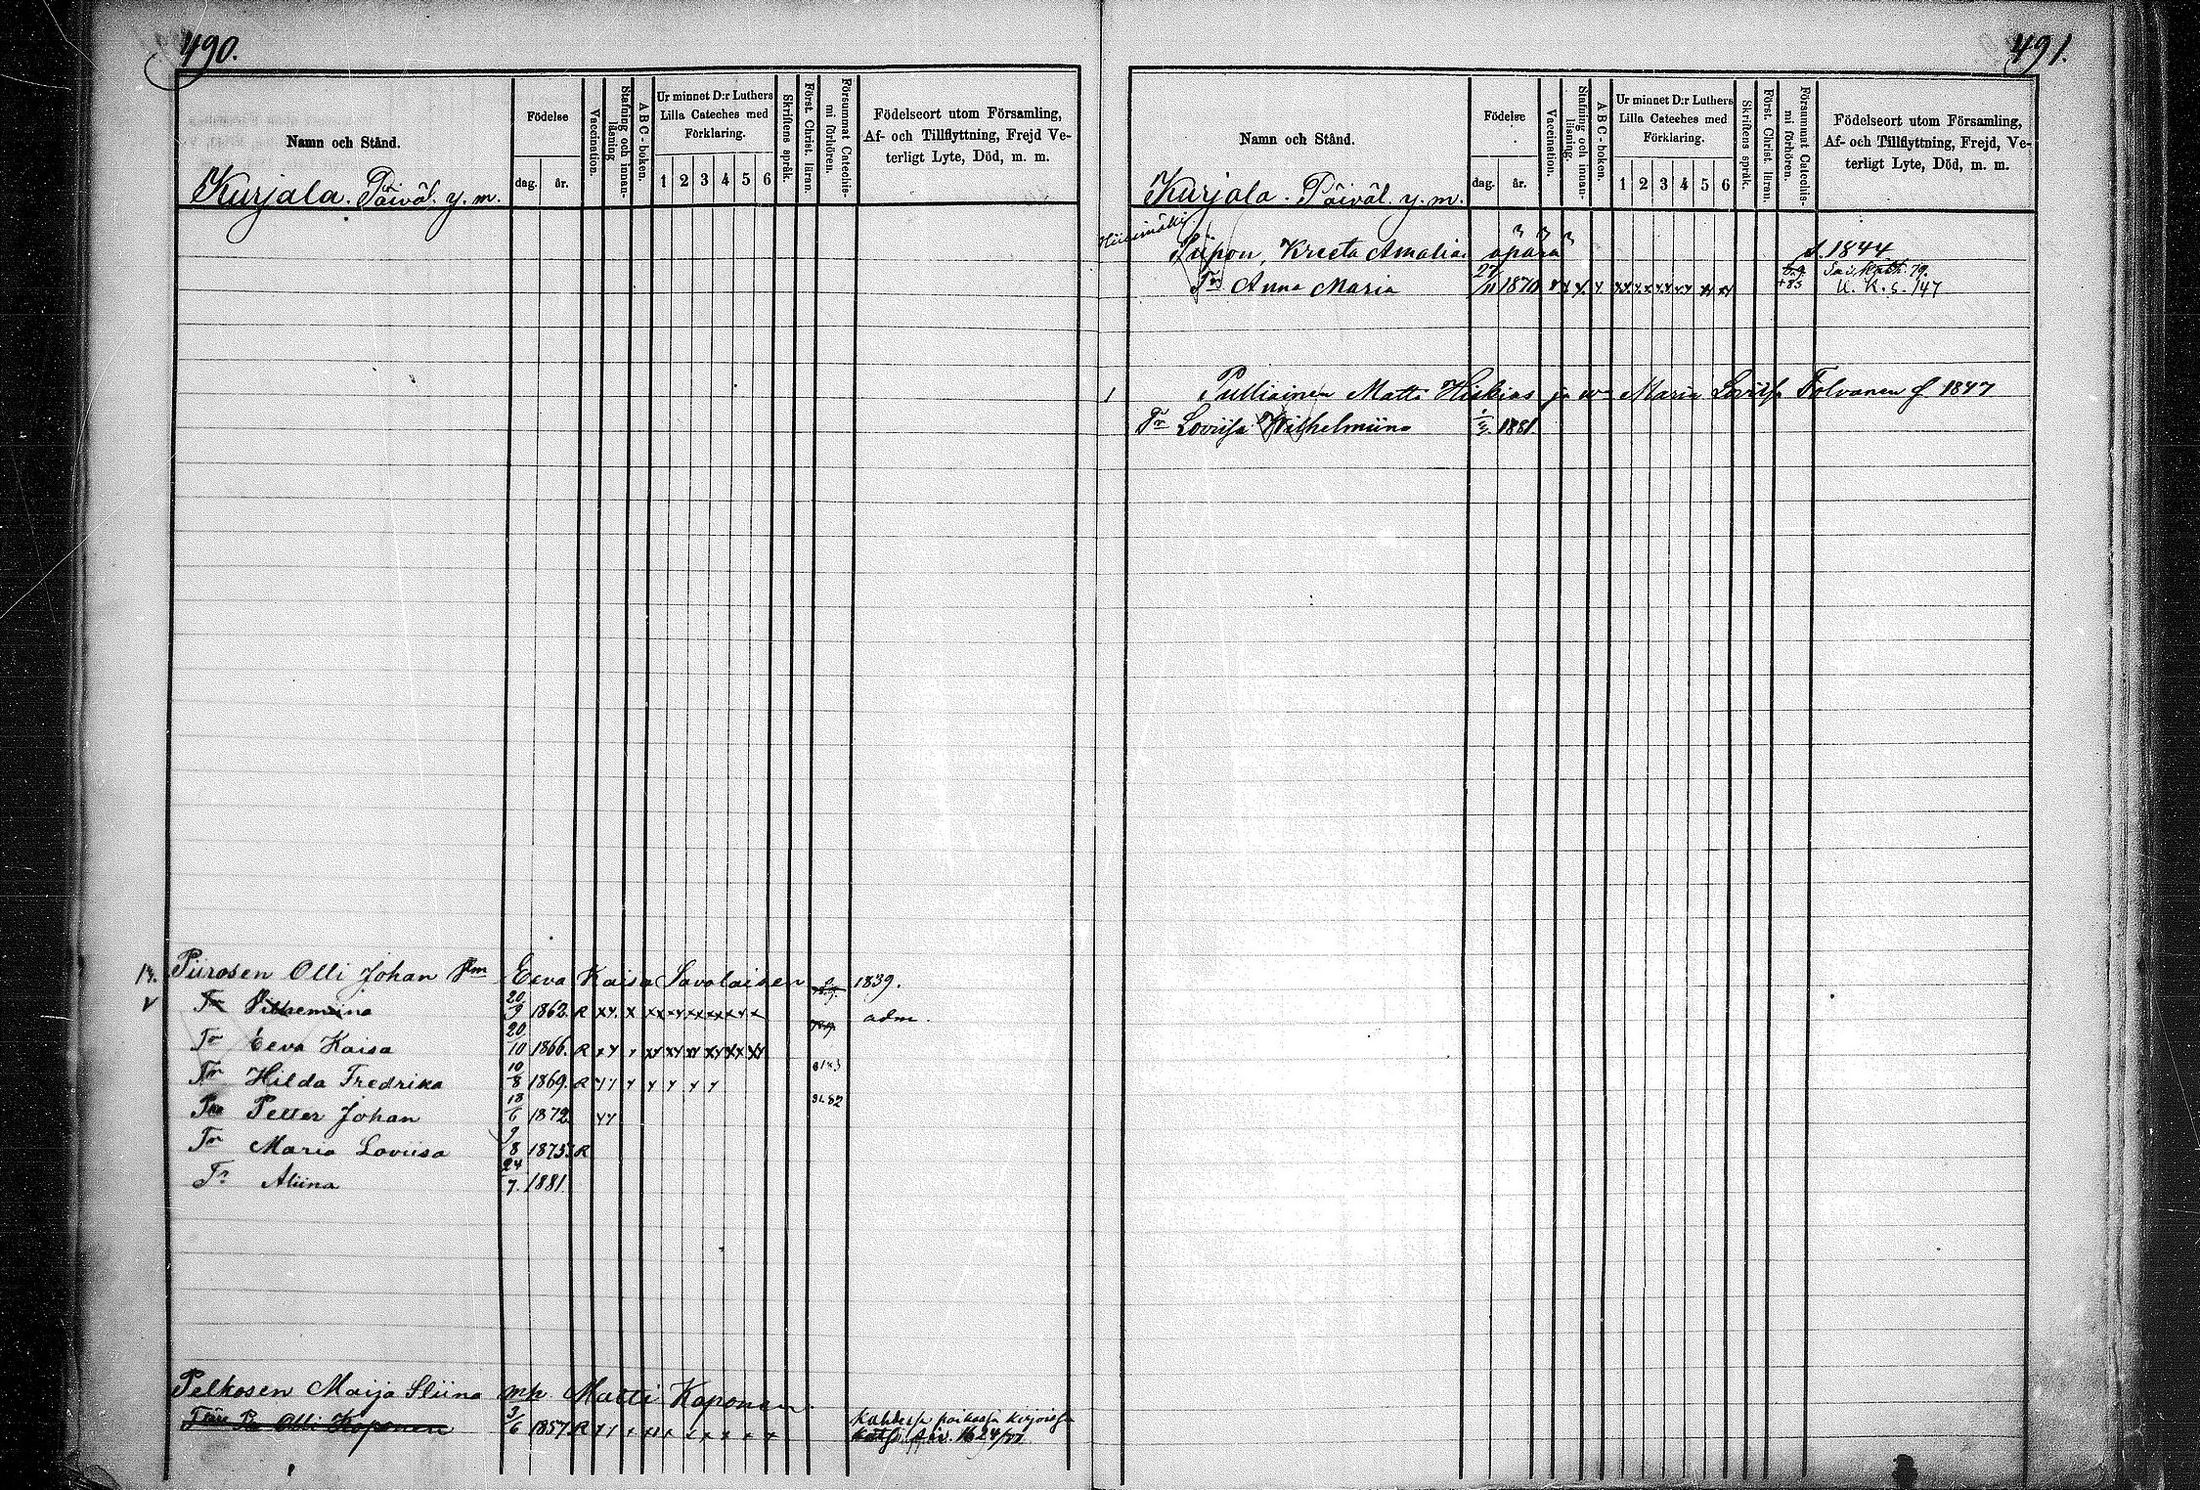 490.
Namn och Stånd.
Födelse
dag. år.
Vaccination.
Stafning och innanläsning
ABC-boken.
Ur minnet D:r Luthers Lilla Cateches med Förklaring.
1 2 3 4 5 6
Skriftens språk.
Först. Christ. läran.
Försummat Catechismi förhören.
Födelseort utom Församling, Af- och Tillflyttning, Frejd Veterligt Lyte, Död, m. m.
Kurjala. Päiväl. y. m.
14. Piirosen Olli Johan Eeva Kaisa Savolaisen 1839.
v Tr Vilhemiina 20/9 1862. R adm.
Tr Eeva Kaisa 20/10 1866. R
Tr Hilda Fredrika 10/8 1869. R
Petter Johan 18/6 1872
Tr Maria Loviisa 9/8 1875. R
Tr Aliina 24/7. 1881.
Pelkosen Maija Stiina mp Matti Koponen
Olli Koponen 3/6 1857. R Kahdessa paikassa kirjoissa
491.
Namn och Stånd.
Födelse
dag. år.
Vaccination.
Stafning och innanläsning.
ABC-boken.
Ur minnet D:r Luthers Lilla Cateches med Förklaring.
1 2 3 4 5 6
Skriftens språk.
Först. Christ. läran.
Försummat Catechismi förhören.
Födelseort utom Församling, Af- och Tillflyttning, Frejd, Veterligt Lyte, Död, m. m.
Kurjala. Päiväl. y. m.
Kreeta Amalia apara 1844
Tr Anna Maria 27/11 1870 U. K. s. 147
1 Pulliainen Matti Hiskias ja w Maria Lovisa Tolvanen f 1847
Tr Lovisa Wilhelmiina 1881